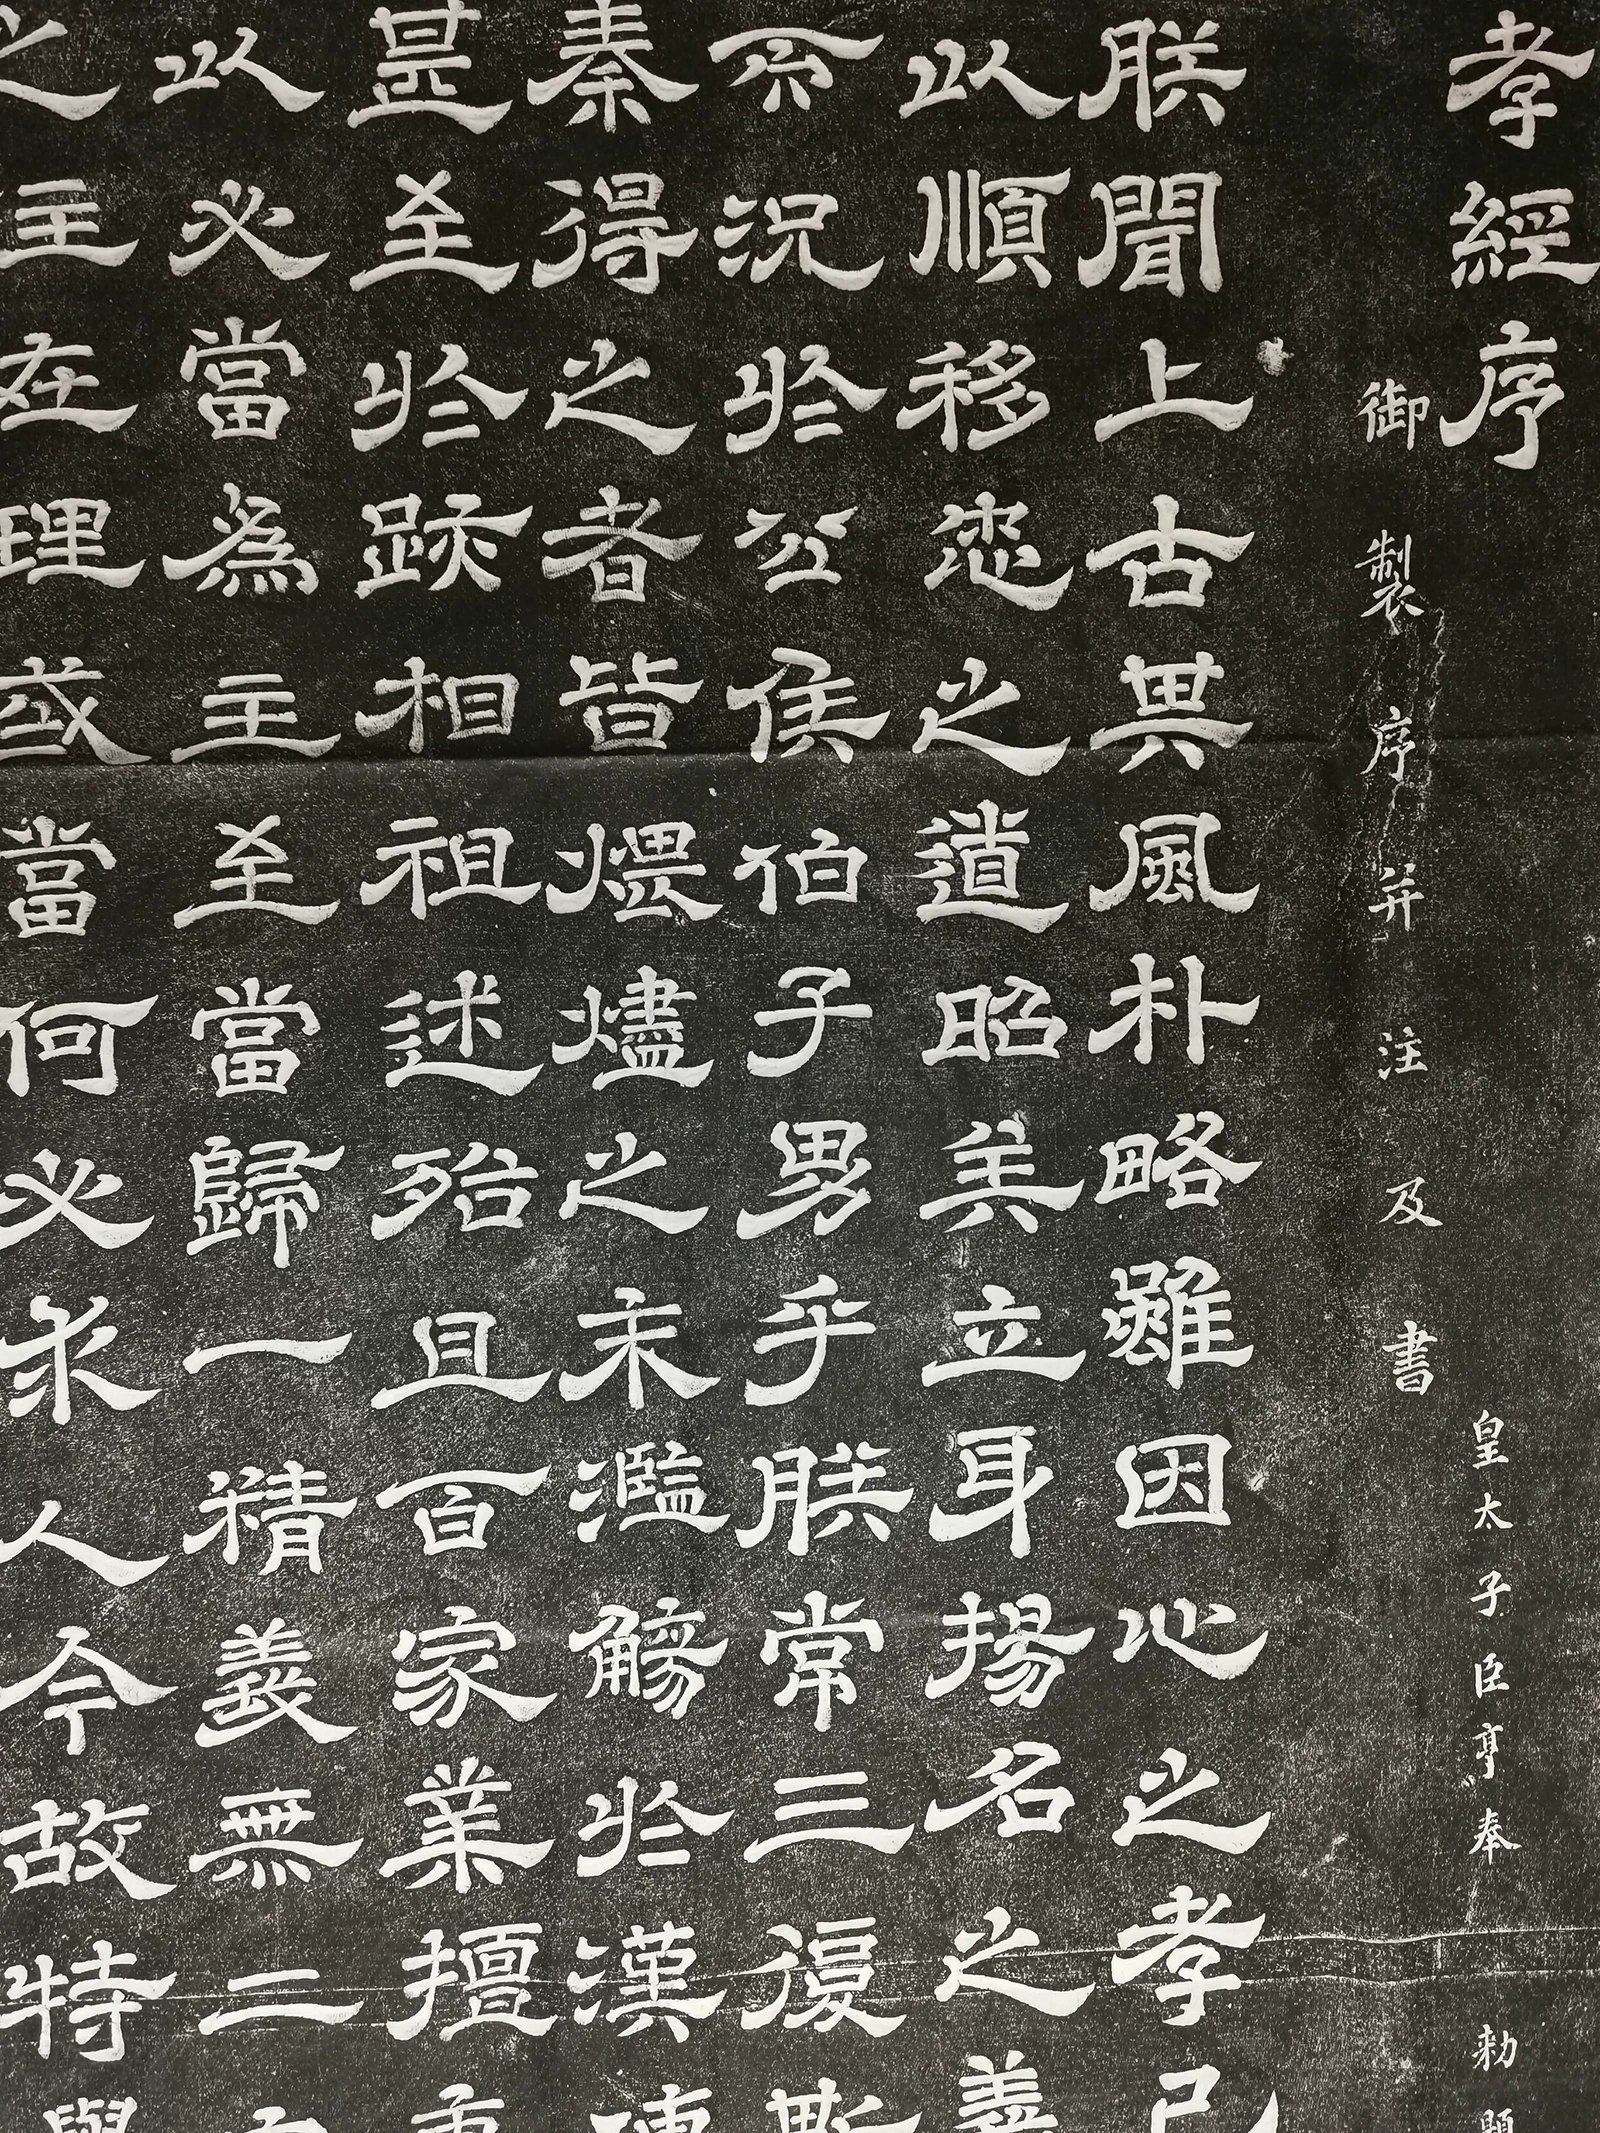 孝經序
御製序并注及書
皇太子臣亨奉勅題
朕聞上古其風朴略雖因心之孝已
以順移忠之道昭矣立身揚名之義
而況於公侯伯子男乎朕常三復斯
秦得之者皆煨燼之末濫觴於漢傳
甚至於跡相祖述殆且百家業擅專
以必當為主至當歸一精義無二安
之注在理或當何必求人今故特舉